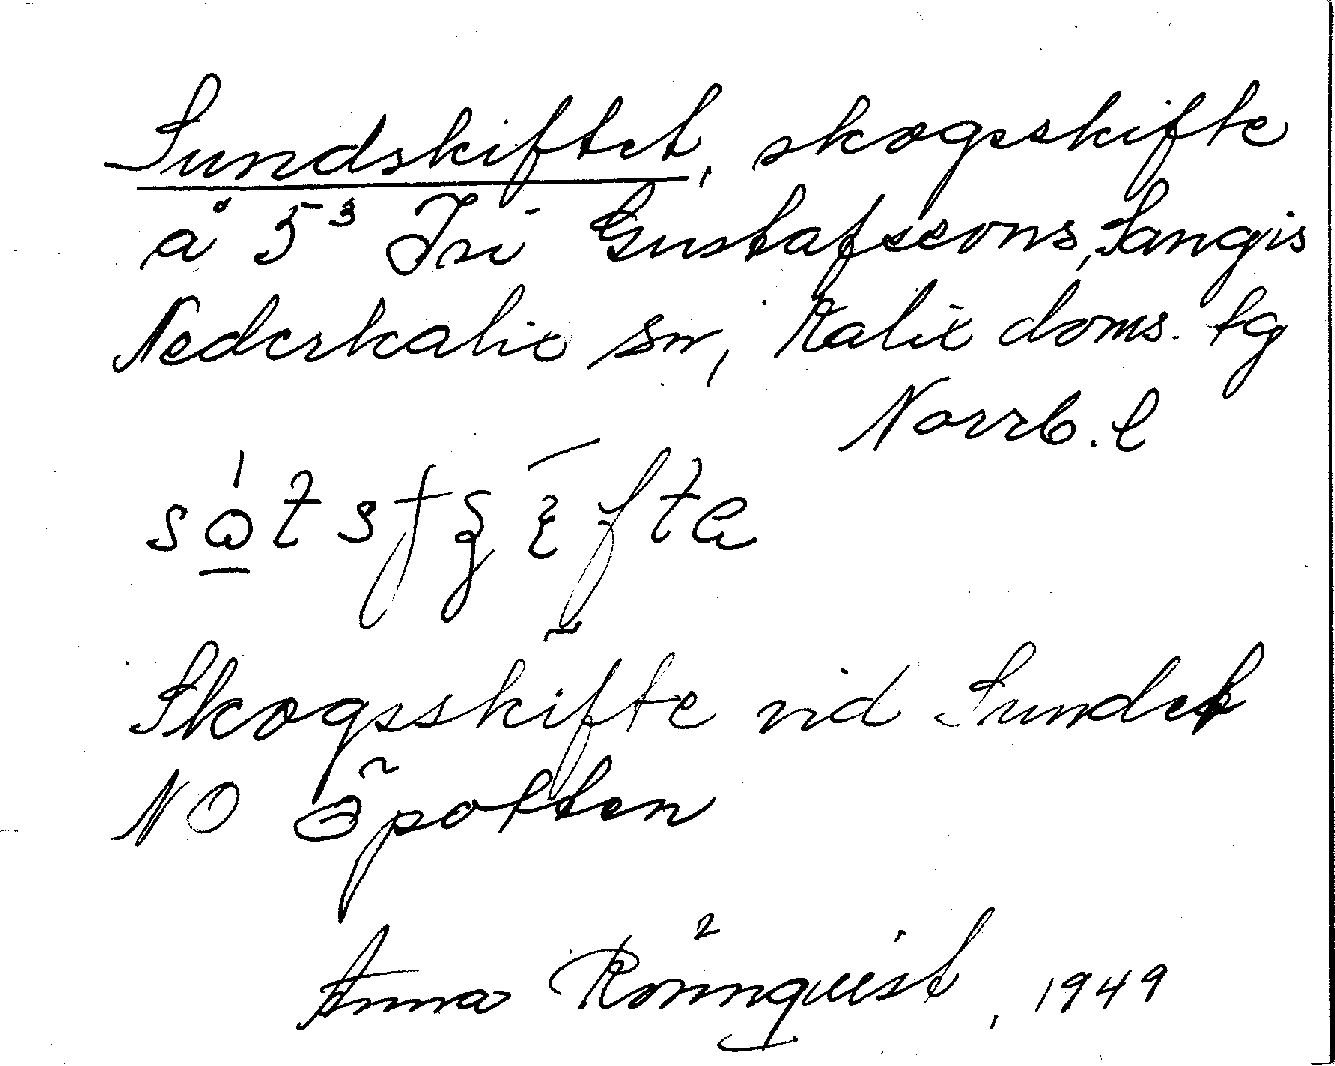 Sundskiftet, skogsskifte
å 5³ Gustafssons, Sangis
Nederkalix sn, Kalix doms. tg
Norrb. l
Skogsskifte vid Sundet
NO Öpotten
Anna Rönnquist, 1949